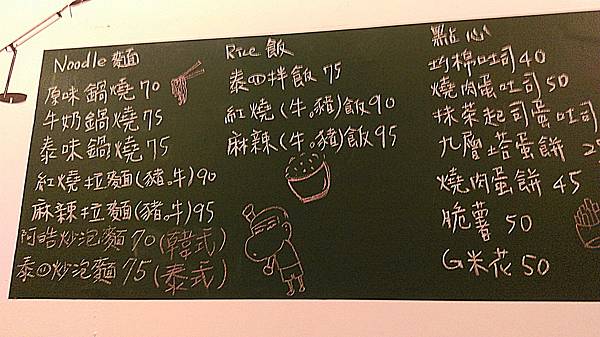 Noodle 麵
原味鍋燒 70
牛奶鍋燒 75
泰味鍋燒 75
紅燒拉麵(豬。牛) 90
麻辣拉麵(豬。牛) 95
阿皓炒泡麵 70 (韓式)
泰の炒泡麵 75 (泰式)
Rice 飯
泰の拌飯 75
紅燒(牛。豬)飯 90
麻辣(牛。豬)飯 95
點心
巧棉吐司 40
燒肉蛋吐司 50
抹茶起司蛋吐司
九層塔蛋餅 25
燒肉蛋餅 45
脆薯 50
G米花 50